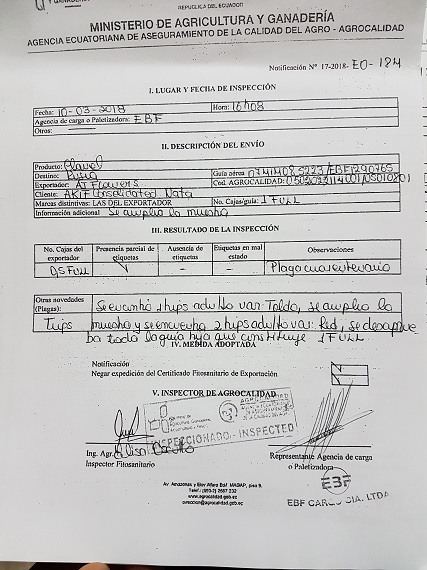 REPUBLICA DEL ECUADOR
MINISTERIO DE AGRICULTURA Y GANADERÍA
AGENCIA ECUATORIANA DE ASEGURAMIENTO DE LA CALIDAD DEL AGRO - AGROCALIDAD
Notificación Nº 17-2018- EO-184
I. LUGAR Y FECHA DE INSPECCIÓN
Fecha: 10-03-2018 Hora: 16h08
Agencia de carga o Paletizadora: EBF
Otros:
II. DESCRIPCIÓN DEL ENVÍO
Producto: Clavel
Destino: Rusia Guía aérea
Exportador: AT Flowers Cod. AGROCALIDAD:
Cliente: AKIF Consolidated Nata
Marcas distintivas: LAS DEL EXPORTADOR No. Cajas/guía: 1 FULL
Información adicional Se amplio la muestra
III. RESULTADO DE LA INSPECCIÓN
No. Cajas del exportador Presencia parcial de etiquetas Ausencia de etiquetas Etiquetas en mal estado Observaciones
0,5 FULL - - Plaga cuarentenario
Otras novedades (Plagas): Se encontró 1 thips adulto var: , se amplio la
Tups muestra y se encuentra 2 thips adulto var: Red, se desaprue
ba toda la guía hija que constituye 1 FULL
IV. MEDIDA ADOPTADA
Notificación
Negar expedición del Certificado Fitosanitario de Exportación
V. INSPECTOR DE AGROCALIDAD
INSPECCIONADO - INSPECTED
Ing. Agr.
Inspector Fitosanitario
Representante Agencia de carga
o Paletizadora
EBF
EBF CARGO CIA. LTDA
Av. Amazonas y Eloy Alfaro Edif. MAGAP, piso 9.
Telef.: (593-2) 2567 232
www.agrocalidad.gob.ec
direccion@agrocalidad.gob.ec